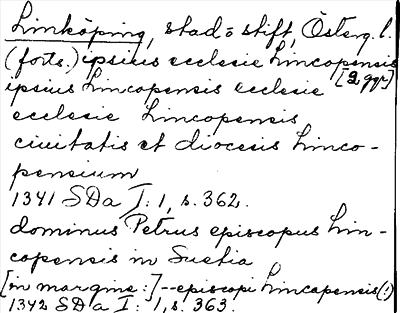 Linköping, stad o stift, Österg. l.
(forts.) ipsius ecclesie Lincopensis
ipsius Lincopensis ecclesie [2 ggr]
ecclesie Lincopensis
ciuitatis et diocesis Linco-
pensium
1341 SDa I: 1, s. 362.
dominus Petrus episcopus Lin-
copensis in Suetia
[in margine:] -- episcopi Lincapensis (!)
1342 SDa I: 1, s. 363.